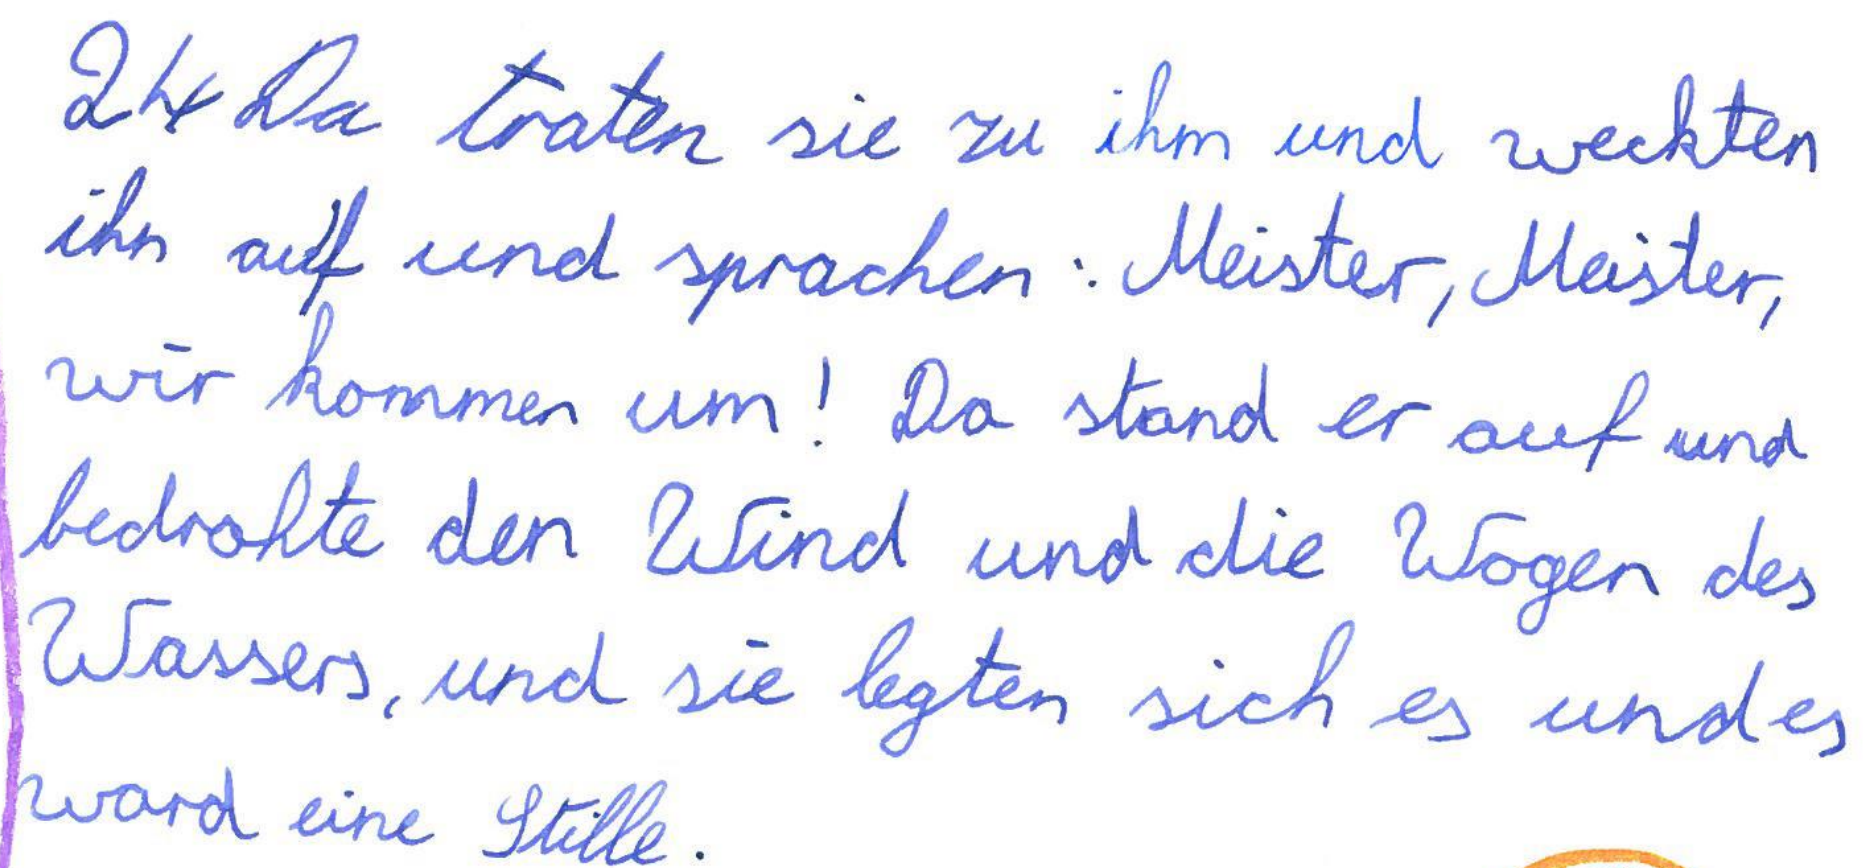 24 Da traten sie zu ihm und weckten
ihn auf und sprachen: Meister, Meister,
wir kommen um! Da stand er auf und
bedrohte den Wind und die Wogen des
Wassers, und sie legten sich es und es
ward eine Stille.